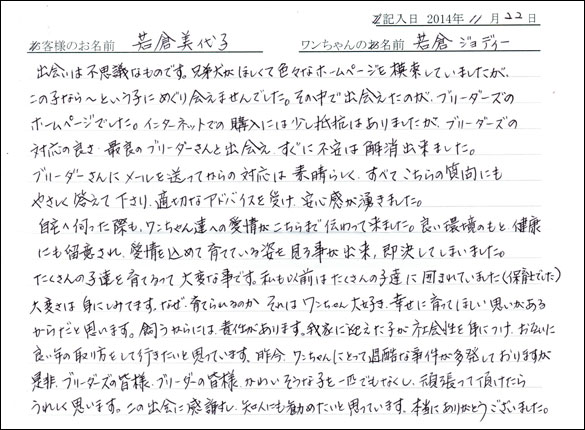 記入日 2014年 11月 22日
お客様のお名前 若倉美代子 ワンちゃんのお名前 若倉 ジョディー
出会いは不思議なものです。兄弟犬がほしくて色々なホームページを検索していましたが、
この子なら〜という子にめぐり会えませんでした。その中で出会えたのが、ブリーダーズの
ホームページでした。インターネットでの購入には少し抵抗はありましたが、ブリーダーズの
対応の良さ、最良のブリーダーさんと出会え、すぐに不安は解消出来ました。
ブリーダーさんにメールを送ってからの対応は素晴らしく、すべてこちらの質問にも
やさしく答えて下さり、適切なアドバイスを受け、安心感が湧きました。
自宅へ伺った際も、ワンちゃん達への愛情がこちらまで伝わって来ました。良い環境のもと、健康
にも留意され、愛情を込めて育てている姿を見る事が出来、即決してしまいました。
たくさんの子達を育てるって大変な事です。私も以前はたくさんの子達に囲まれていました(保育士でした)
大変さは身にしみてます。なぜ、育てられるのか それはワンちゃん大好き、幸せに育ってほしい思いがある
からだと思います。飼うからには、責任があります。我家に迎えた子が社会性を身につけ、お互いに
良い年の取り方をして行きたいと思っています。昨今、ワンちゃんにとって過酷な事件が多発しておりますが
是非、ブリーダーズの皆様、ブリーダーの皆様、かわいそうな子を一匹でもなくし、頑張って頂けたら
うれしく思います。この出会に感謝し、知人にも勧めたいと思っています。本当にありがとうございました。